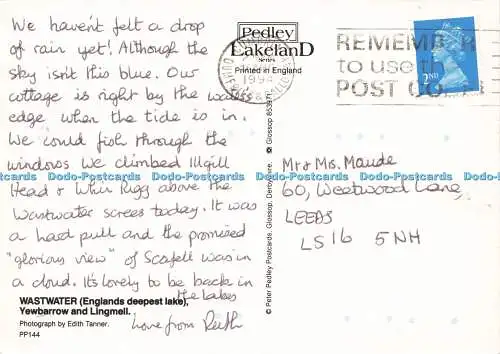 We haven't felt a drop
of rain yet! Although the
sky isn't this blue. Our
cottage is right by the waters
edge when the tide is in.
We could fish through the
windows We climbed Illgill
Head & Whin Rigg above the
Wastwater screes today. It was
a hard pull and the promised
"glorious view" of Scafell was in
a cloud. It's lovely to be back in
the lakes
Love from Ruth
WASTWATER (Englands deepest lake),
Yewbarrow and Lingmell.
Photograph by Edith Tanner.
PP144
Pedley
LakelanD
Series
Printed in England
© Peter Pedley Postcards, Glossop, Derbyshire. ☎ Glossop
REMEMBER
to use the
POST CODE
2ND
Mr & Mrs. Maude
60, Weetwood Lane,
LEEDS
LS16 5NH
Dodo-Postcards Dodo-Postcards Dodo-Postcards Dodo-Postcards Dodo-Postcards